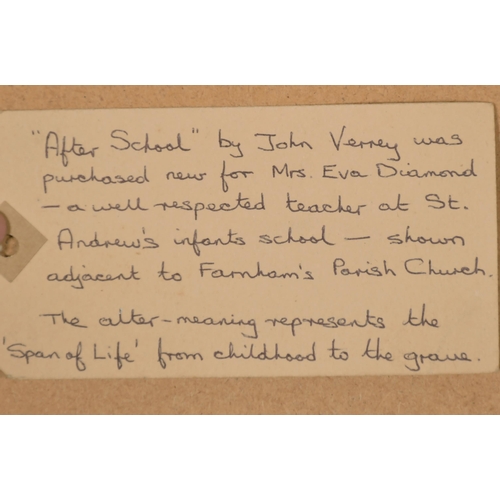 "After School" by John Verney was
purchased new for Mrs. Eva Diamond
- a well respected teacher at St.
Andrew's infants school - shown
adjacent to Farnham's Parish Church.
The alter-meaning represents the
'Span of Life' from childhood to the grave.